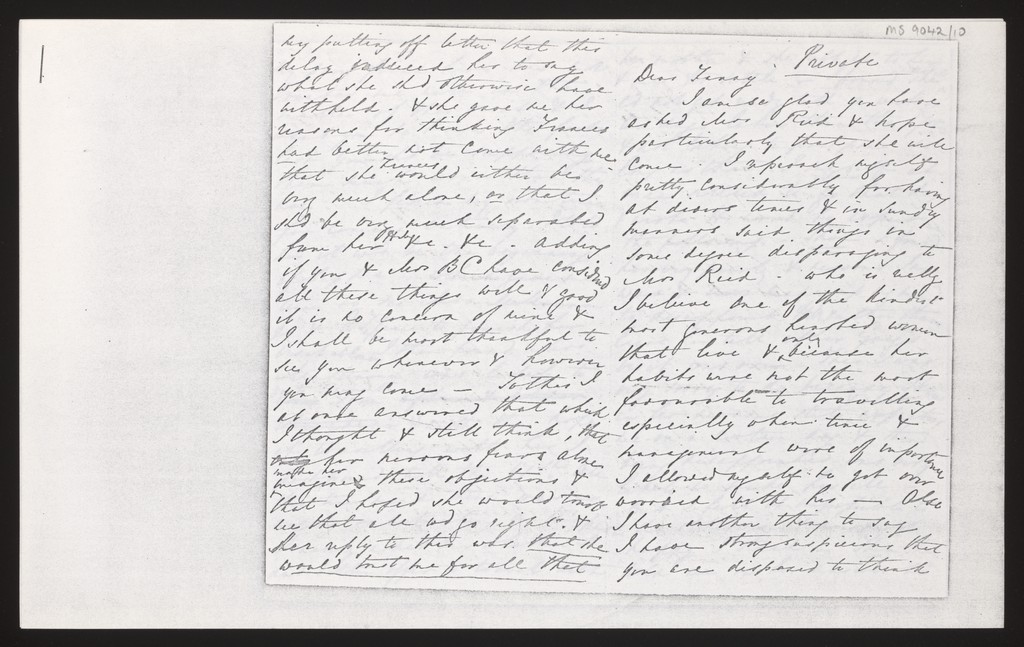 MS 9042/10
my putting off better that this
delay induced her to say
what she shd otherwise have
withheld. & she gave me her
reasons for thinking Frances
had better not come with me -
that she Frances would either be
very much alone, or that I
shd be very much separated
from her &c. &c - adding
if you & Mrs BC have considered
all these things well & good
it is no concern of mine &
I shall be most thankful to
see you whenever & however
you may come - To this I
at once answered that which
I thought & still think, that
her nervous fears alone
made her imagine these objections &
that I hoped she would
see that all wd go right - &
her reply to this was that she
would trust me for all that
Private
Dear Fanny.
I am so glad you have
asked Mrs Reid & hope
particularly that she will
come. I reproach myself
pretty considerably for having
at divers times & in sundry
manners said things in
some degree disparaging to
Mrs Reid - who is really
I believe one of the kindest
most generous hearted women
that live & only because her
habits were not the most
favourable to travelling
especially when time &
management were of importance
I allowed myself to get over
worried with her - Also
I have another thing to say
I have strong suspicions that
you are disposed to think